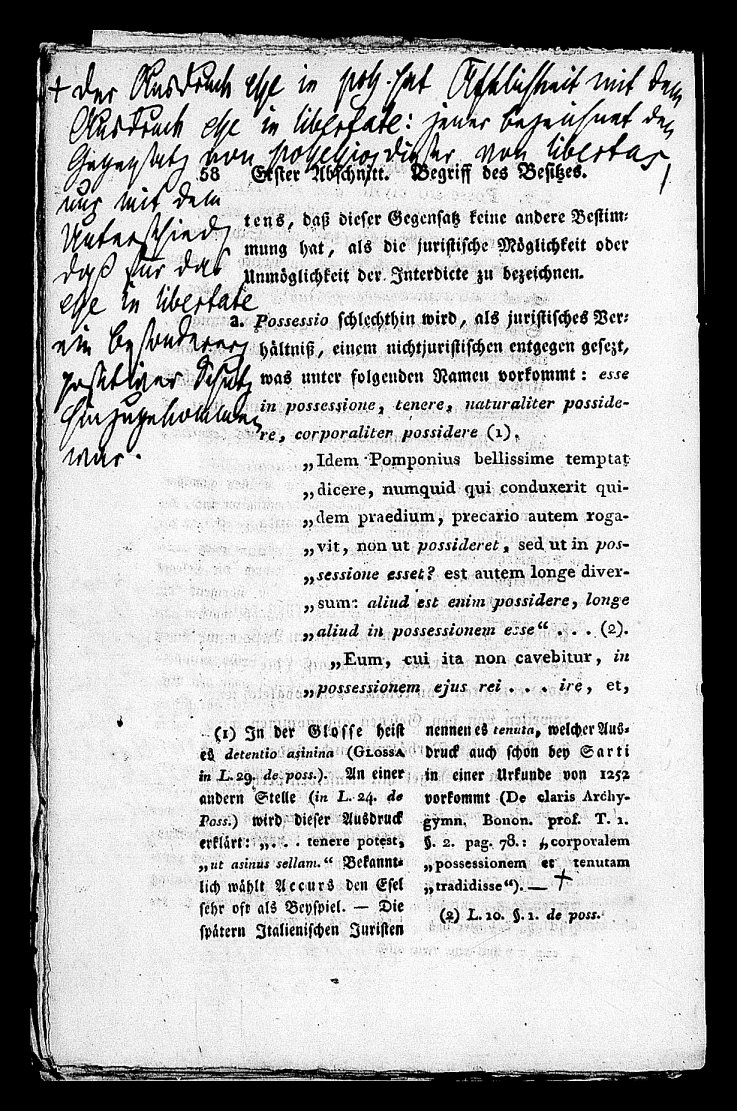 + der Ausdruck esse in poss. hat Ähnlichkeit mit dem
Ausdruck esse in libertate: jener bezeichnet den
Gegensatz von possessio, dieser von libertas,
nur mit dem
Unterschied,
daß für das
esse in libertate
ein besonderer
positiver Schutz
hinzugekommen
war.
58 Erster Abschnitt. Begriff des Besitzes.
tens, daß dieser Gegensatz keine andere Bestim-
mung hat, als die juristische Möglichkeit oder
Unmöglichkeit der Interdicte zu bezeichnen.
a. Possessio schlechthin wird, als juristisches Ver-
hältniß, einem nichtjuristischen entgegen gesezt,
was unter folgenden Namen vorkommt: esse
in possessione, tenere, naturaliter posside-
re, corporaliter possidere (1).
„Idem Pomponius bellissime temptat
„dicere, numquid qui conduxerit qui-
„dem praedium, precario autem roga-
„vit, non ut possideret, sed ut in pos-
„sessione esset? est autem longe diver-
„sum: aliud est enim possidere, longe
„aliud in possessionem esse“ . . . (2).
„Eum, cui ita non cavebitur, in
„possessionem ejus rei . . . ire, et,
(1) In der Glosse heist
es detentio asinina (GLOSSA
in L. 29. de poss.). An einer
andern Stelle (in L. 24. de
Poss.) wird dieser Ausdruck
erklärt: „. . . tenere potest,
„ut asinus sellam.“ Bekannt-
lich wählt Accurs den Esel
sehr oft als Beyspiel. — Die
spätern Italienischen Juristen
nennen es tenuta, welcher Aus-
druck auch schon bey Sarti
in einer Urkunde von 1252
vorkommt (De claris Archy-
gymn. Bonon. prof. T. 1.
§. 2. pag. 78.: „corporalem
„possessionem et tenutam
„tradidisse“). — +
(2) L. 10. §. 1. de poss.